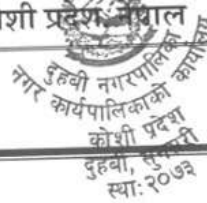 शी प्रदेश, नेपाल
दुहवी नगरपालिका
नगर कार्यपालिकाको कार्यालय
कोशी प्रदेश
दुहवी, सुनसरी
स्था: २०७३